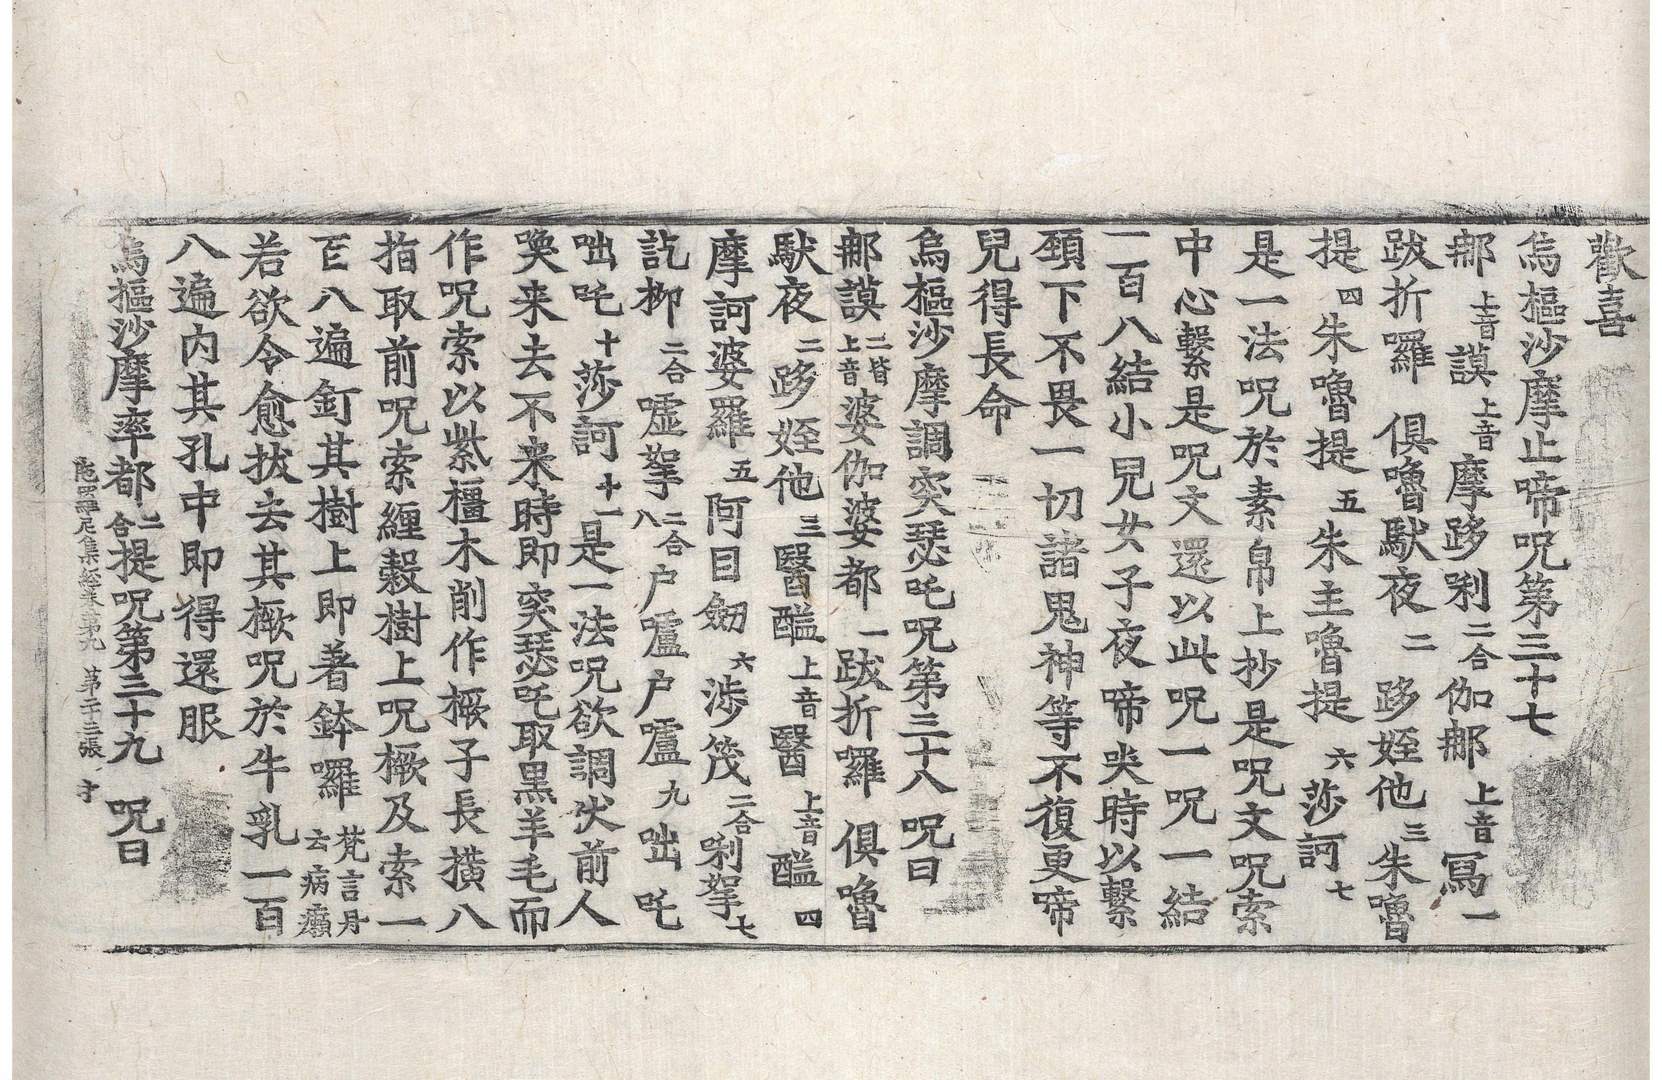 歡喜
烏樞沙摩止啼呪第三十七
那上音謨上音摩跢唎二合伽那上音寫一
跋折囉俱嚕馱夜二跢姪他三朱嚕
提四朱嚕提五朱主嚕提六莎訶七
是一法呪於素帛上抄是呪文呪索
中心繫是呪文還以此呪一呪一結
一百八結小兒女子夜啼哭時以繫
頚下不畏一切諸鬼神等不復更啼
兒得長命
烏樞沙摩調突瑟吒呪第三十八呪曰
那謨二皆上音婆伽婆都一跋折囉俱嚕
馱夜二跢姪他三醫醯上音醫上音醯四
摩訶婆羅五阿目劔六渉筏二合唎拏七
訖柳二合嘘拏二合八户嚧户嚧九咄吒
咄吒十莎訶十一是一法呪欲調伏前人
喚来去不来時即突瑟吒取黒羊毛而
作呪索以紫橿木削作橛子長橫八
指取前呪索纏穀樹上呪橛及索一
百八遍釘其樹上即著鉢囉梵言丹云病癩
若欲令愈拔去其橛呪於牛乳一百
八遍内其孔中即得還服
烏樞沙摩率都二合提呪第三十九呪曰
陁羅尼集經卷第九 第二十三張 才